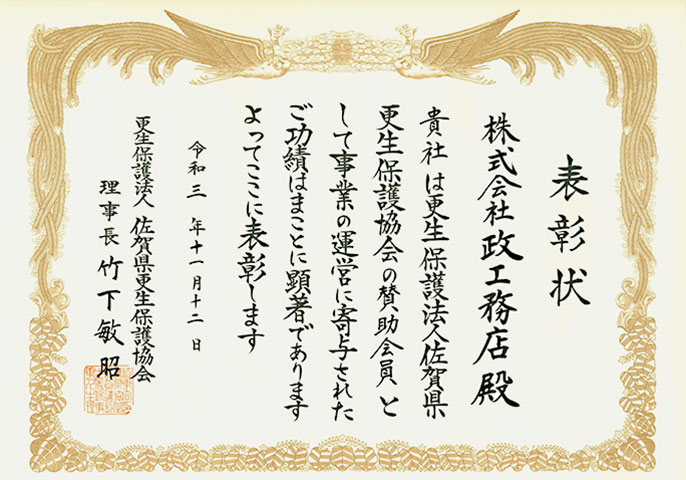 表彰状
株式会社政工務店殿
貴社は更生保護法人佐賀県
更生保護協会の賛助会員と
して事業の運営に寄与された
ご功績はまことに顕著であります
よってここに表彰します
令和三年十一月十二日
更生保護法人 佐賀県更生保護協会
理事長 竹下敏昭